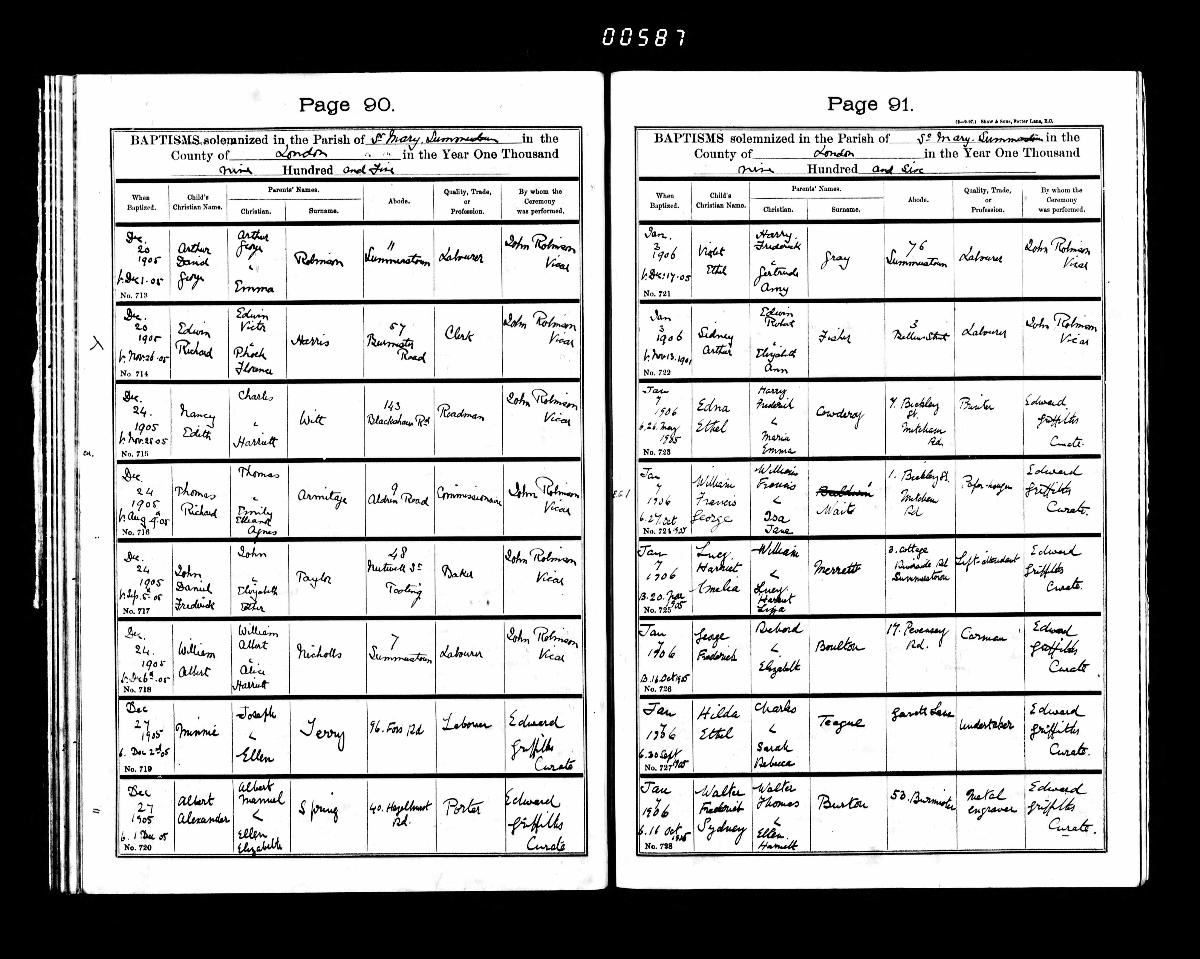 00587
Page 90.
BAPTISMS solemnized in the Parish of St Mary, Summerstown in the
County of London in the Year One Thousand
nine Hundred and Five
When Baptized. Child's Christian Name. Parents' Names. Christian. Surname. Abode. Quality, Trade, or Profession. By whom the Ceremony was performed.
Dec. 20 1905 b. Dec 1. 05 No. 713 Arthur David George Arthur George & Emma Robinson 11 Summerstown Labourer John Robinson Vicar
Dec. 20 1905 b. Nov. 26. 05 No. 714 Edwin Richard Edwin Victor & Phoebe Florence Harris 57 Burmister Road Clerk John Robinson Vicar
Dec. 24. 1905 b. Nov. 28 05 No. 715 Nancy Edith Charles & Harriett Witt 143 Blackshaw Rd Roadman John Robinson Vicar
Dec. 24 1905 b. Aug 9. 05 No. 716 Thomas Richard Thomas & Emily Agnes Armitage 9 Aldrin Road Commissionaire John Robinson Vicar
Dec. 24 1905 b. Sep. 5. 05 No. 717 John Daniel Frederick John & Elizabeth Esther Taylor 48 Tooting Baker John Robinson Vicar
Dec. 24. 1905 b. Dec 6. 05 No. 718 William Albert William Albert & Alice Harriett Nicholls 7 Summerstown Labourer John Robinson Vicar
Dec 27 1905 b. Dec 2nd 05 No. 719 Minnie Joseph & Ellen Terry 96. Foss Rd Labourer Edward Griffiths Curate
Dec 27 1905 b. 1 Dec 05 No. 720 Albert Alexander Albert Manuel & Ellen Elizabeth Spring 40. Hazelhurst Rd. Porter Edward Griffiths Curate
Page 91.
(B—9-97.) Shaw & Sons, Fetter Lane, E.C.
BAPTISMS solemnized in the Parish of St Mary. Summerstown in the
County of London in the Year One Thousand
nine Hundred and Six
When Baptized. Child's Christian Name. Parents' Names. Christian. Surname. Abode. Quality, Trade, or Profession. By whom the Ceremony was performed.
Jan. 3 1906 b. Dec. 17. 05 No. 721 Violet Ethel Harry Frederick & Gertrude Amy Gray 76 Summerstown Labourer John Robinson Vicar
Jan 3 1906 b. Nov 13. 1901 No. 722 Sidney Arthur Edwin Robert & Elizabeth Ann Fisher 3 Bellew Street Labourer John Robinson Vicar
Jan 7 1906 b. 26 May 1905 No. 723 Edna Ethel Harry Frederick & Maria Emma Cowderoy 7. Bickley St. Mitcham Rd. Edward Griffiths Curate.
Jan 7 1906 b. 27 Oct 1905 No. 724 William Francis George William Francis & Isa Jane Baldwin Waite 1. Bickley St. Mitcham Rd Paper-hanger Edward Griffiths Curate.
Jan 7 1906 B. 20. 1905 No. 725 Lucy Harriet Amelia William & Lucy Harriet Liza Merrett 3. Cottage Summerstown Lift attendant Edward Griffiths Curate.
Jan 7 1906 B. 16 Oct 1905 No. 726 George Frederick Richard & Elizabeth Boulton 17. Pevensey Rd. Carman Edward Griffiths Curate
Jan 7 1906 b. 30 Sept 1905 No. 727 Hilda Ethel Charles & Sarah Rebecca Teague Garratt Lane Undertaker Edward Griffiths Curate.
Jan 7 1906 b. 16 Oct 1905 No. 728 Walter Frederick Sydney Walter Thomas & Ellen Burton 53. Burmister Metal engraver Edward Griffiths Curate.